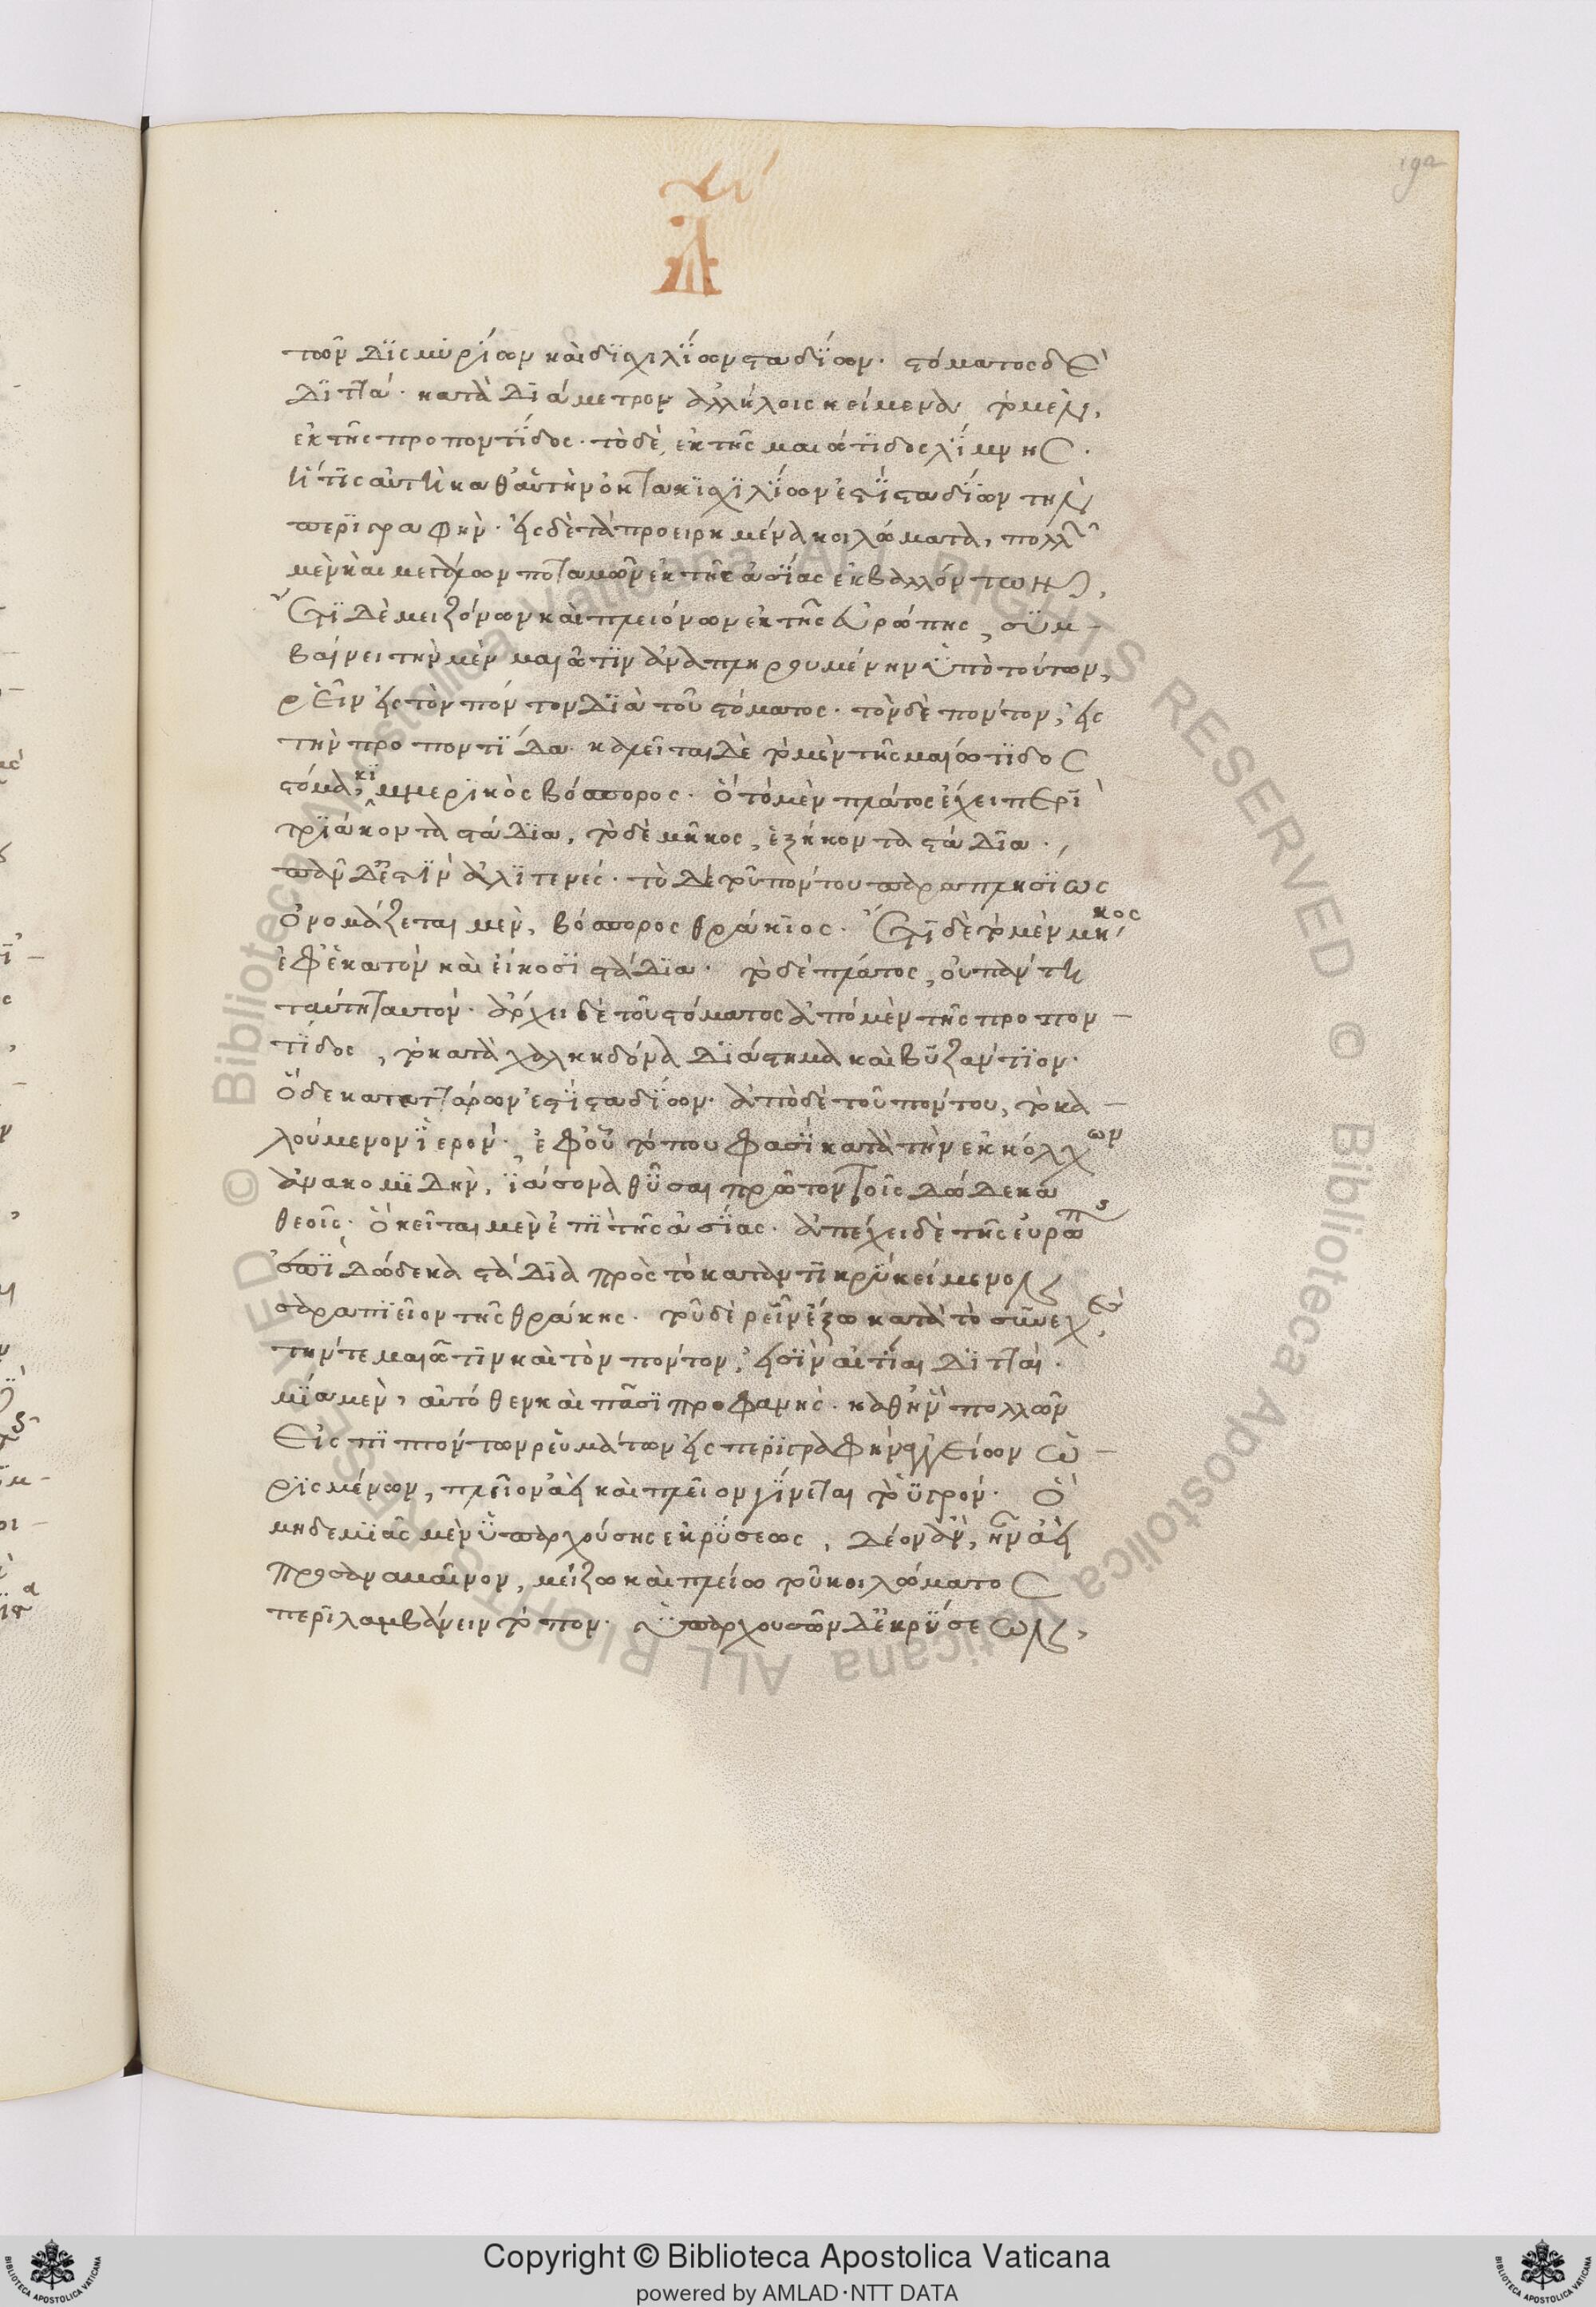 192
τῶν δισμυρίων καὶ δισχιλίων σταδίων. στόματος δὲ
διττά. κατὰ διάμετρον ἀλλήλοις κείμενα τὸ μὲν,
ἐκ τῆς προποντίδος. τὸ δὲ, ἐκ τῆς μαιώτιδος λίμνης.
ἥτις αὐτὴ καθ' αὑτὴν ὀκτακισχιλίων ἐστὶ σταδίων τὴν
περιγραφὴν. εἰς δὲ τὰ προειρημένα κοιλώματα, πολλῶν
μὲν καὶ μεγάλων ποταμῶν ἐκ τῆς ἀσίας ἐκβαλλόντων,
ἔτι δὲ μειζόνων καὶ πλειόνων ἐκ τῆς εὐρώπης, συμ-
βαίνει τὴν μὲν μαιῶτιν ἀναπληρουμένην ὑπὸ τούτων,
ρεῖν εἰς τὸν πόντον διὰ τοῦ στόματος. τὸν δὲ πόντον, εἰς
τὴν προποντίδα. καλεῖται δὲ τὸ μὲν τῆς μαιώτιδος
στόμα, κιμμερικὸς βόσπορος. ὃ τὸ μὲν πλάτος ἔχει περὶ
τριάκοντα στάδια, τὸ δὲ μῆκος, ἑξήκοντα στάδια.
πᾶν δ' ἐστὶν ἁλιτενές. τὸ δὲ τοῦ πόντου παραπλησίως
ὀνομάζεται μὲν, βόσπορος θράκιος. ἔστι δὲ τὸ μὲν μῆκος
ἐφ' ἑκατὸν καὶ εἴκοσι στάδια. τὸ δὲ πλάτος, οὐ πάντη
ταύτητ αυτόν. ἄρχει δὲ τοῦ στόματος ἀπὸ μὲν τῆς προπον-
τίδος, τὸ κατὰ χαλκηδόνα διάστημα καὶ βυζάντιον.
ὃ δεκατεττάρων ἐστὶ σταδίων. ἀπὸ δὲ τοῦ πόντου, τὸ κα-
λούμενον ἱερόν. ἐφ' οὗ τόπου φασὶ κατὰ τὴν ἐκ κόλχων
ἀνακομιδὴν, ἰάσονα θῦσαι πρῶτον τοῖς δώδεκα
θεοῖς. ὃ κεῖται μὲν ἐπὶ τῆς ἀσίας. ἀπέχει δὲ τῆς εὐρώπης
ἐπὶ δώδεκα στάδια πρὸς τὸ καταντικρὺ κείμενον
σαραπιεῖον τῆς θράκης. τοῦ δὲ ρεῖν ἔξω κατὰ τὸ συνεχὲς
τήν τε μαιῶτιν καὶ τὸν πόντον, εἰσὶν αἰτίαι διτταί.
μία μὲν, αὐτόθεν καὶ πᾶσι προφανὴς. καθ' ἣν πολλῶν
εἰσπιπτόντων ρευμάτων εἰς περιγραφὴν ἀγγείων ὡ-
ρισμένων, πλεῖον ἀεὶ καὶ πλεῖον γίνεται τὸ ὑγρόν. ὃ
μηδεμιᾶς μὲν ὑπαρχούσης ἐκρύσεως, δέον ἂν, ἦν ἀεὶ
προσαναμαῖνον, μείζω καὶ πλείω τοῦ κοιλώματος
περιλαμβάνειν τόπον. ὑπαρχουσῶν δ' ἐκρύσεων,
Copyright © Biblioteca Apostolica Vaticana
powered by AMLAD·NTT DATA